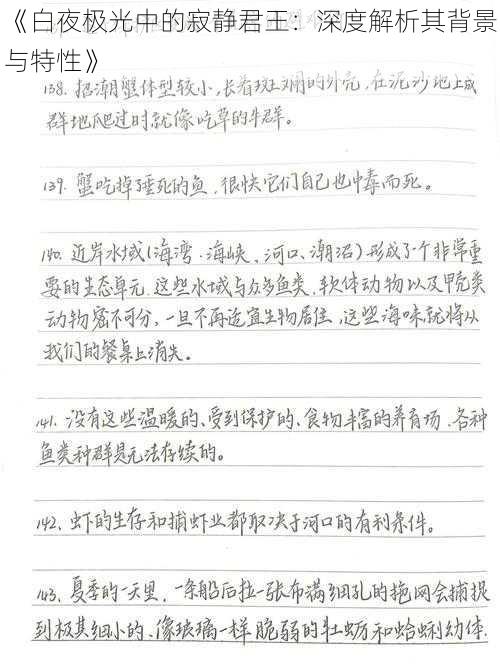 《白夜极光中的寂静君王：深度解析其背景
与特性》
138. 招潮蟹体型较小,长着斑斓的外壳,在泥沙地上成
群地爬过时就像吃草的牛群。
139. 蟹吃掉了垂死的鱼,很快它们自己也中毒而死。
140. 近岸水域(海湾、海峡、河口、潮沼)形成了一个非常重
要的生态单元.这些水域与众多鱼类、软体动物以及甲壳类
动物密不可分,一旦不再适宜生物居住,这些海味就将从
我们的餐桌上消失。
141. 没有这些温暖的、受到保护的、食物丰富的养育场,各种
鱼类种群是无法存续的。
142、虾的生存和捕虾业都取决于河口的有利条件。
143、夏季的一天里,一条船后拉一张布满细孔的拖网会捕捉
到极其细小的、像玻璃一样脆弱的牡蛎和蛤蜊幼体.